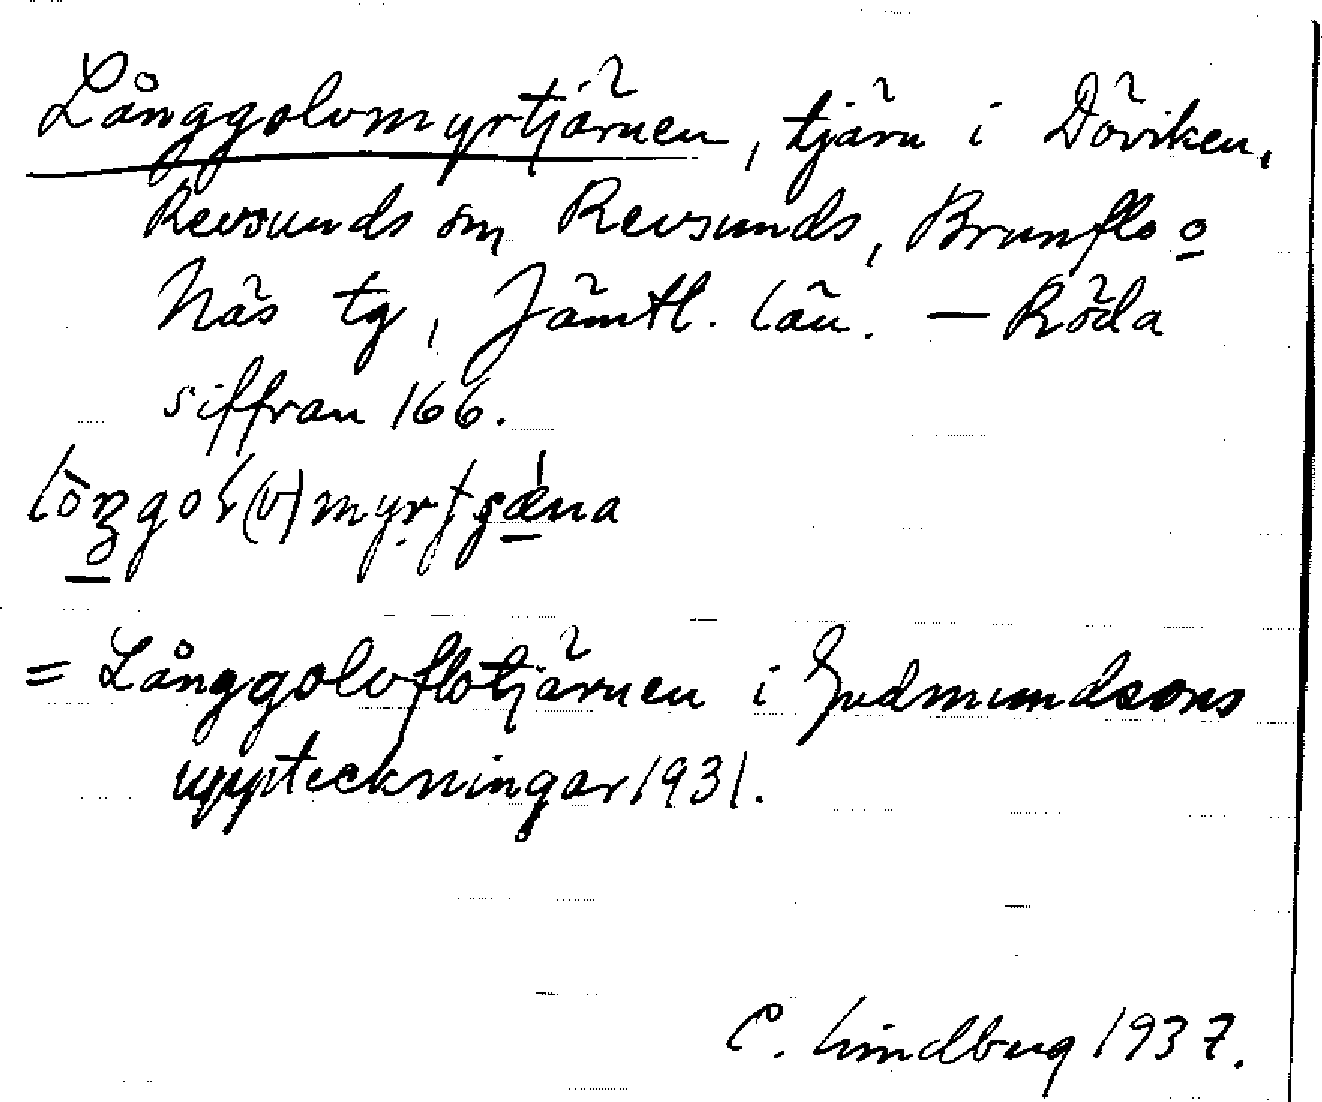 Långgolvmyrtjärnen, tjärn i Döviken,
Revsunds sn, Revsunds, Brunflo o
Näs tg, Jämtl. län. — Röda
siffran 166.
= Långgolvflotjärnen i Gudmundsons
uppteckningar 1931.
C. Lindberg 1937.